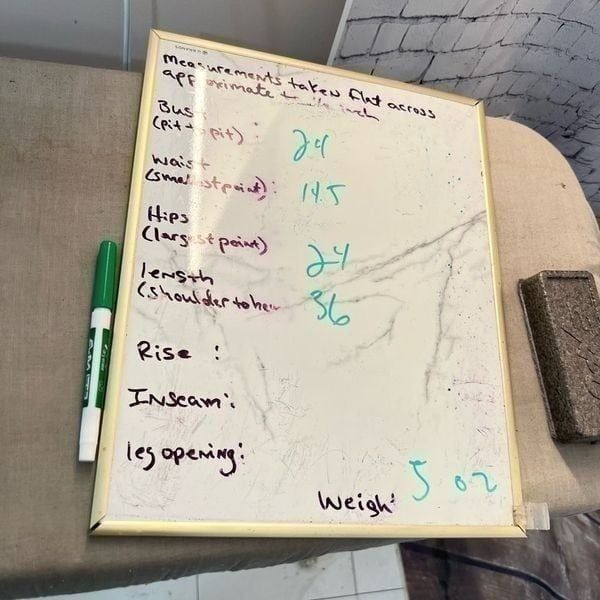 Measurements taken flat across
approximate
Bust
(pit to pit) : 24
waist
(smallest point): 14.5
Hips
(largest point) 24
length
(shoulder to hem 36
Rise :
Inseam:
leg opening:
Weigh: 5 oz